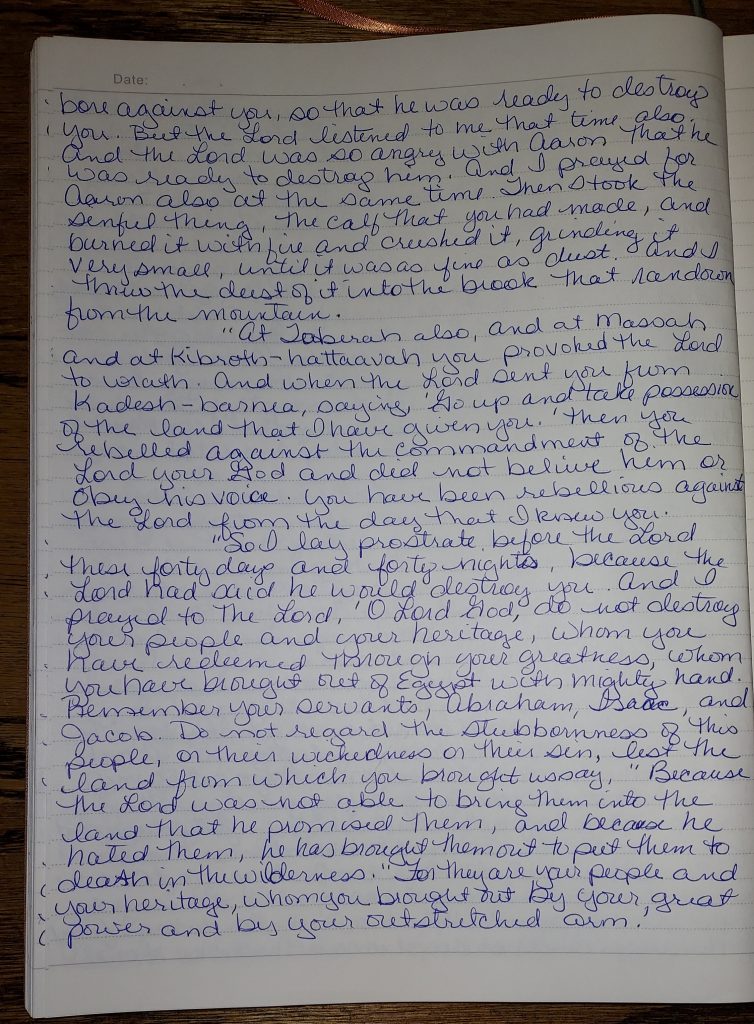 Date:
bore against you, so that he was ready to destroy
you. But the Lord listened to me that time also.
And the Lord was so angry with Aaron that he
was ready to destroy him. And I prayed for
Aaron also at the same time. Then I took the
sinful thing, the calf that you had made, and
burned it with fire and crushed it, grinding it
very small, until it was as fine as dust. And I
threw the dust of it into the brook that ran down
from the mountain.
"At Taberah also, and at Massah
and at Kibroth-hattaavah you provoked the Lord
to wrath. And when the Lord sent you from
Kadesh-barnea, saying, 'Go up and take possession
of the land that I have given you.' then you
rebelled against the commandment of the
Lord your God and did not believe him or
obey his voice. You have been rebellious against
the Lord from the day that I knew you.
"So I lay prostrate before the Lord
these forty days and forty nights, because the
Lord had said he would destroy you. And I
prayed to the Lord, 'O Lord God, do not destroy
your people and your heritage, whom you
have redeemed through your greatness, whom
you have brought out of Egypt with mighty hand.
Remember your servants, Abraham, Isaac, and
Jacob. Do not regard the stubbornness of this
people, or their wickedness or their sin, lest the
land from which you brought us say, "Because
the Lord was not able to bring them into the
land that he promised them, and because he
hated them, he has brought them out to put them to
death in the wilderness." For they are your people and
your heritage, whom you brought out by your great
power and by your outstretched arm.'